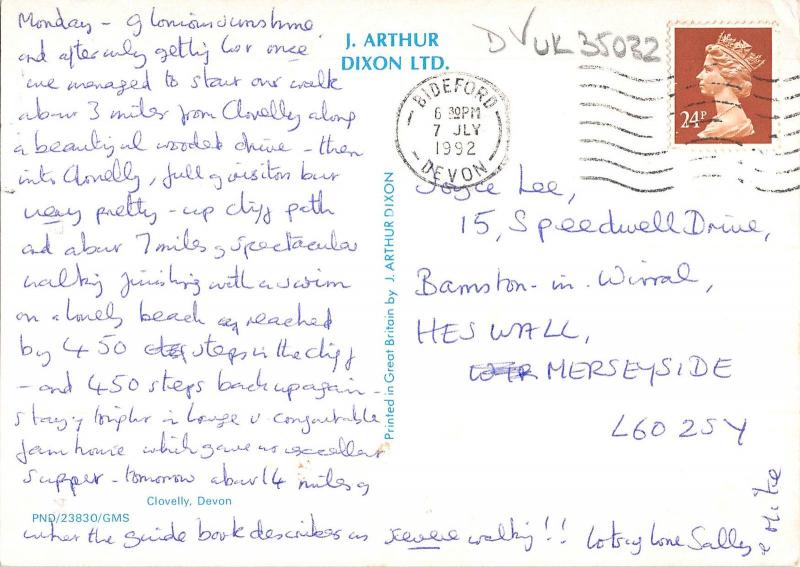 Monday - glorious sunshine
and after only getting lost once
we managed to start our walk
about 3 miles from Clovelly along
a beautiful wooded drive - then
into Clovelly, full of visitors but
very pretty - up cliff path
and about 7 miles of spectacular
walking finishing with a swim
on a lonely beach reached
by 450 steps in the cliff
- and 450 steps back up again -
staying tonight in large & comfortable
farmhouse which gave us excellent
supper - tomorrow about 14 miles of
what the guide book describes as severe walking!! Lots of love Sally
& Mike
Clovelly, Devon
PND/23830/GMS
J. ARTHUR
DIXON LTD.
Printed in Great Britain by J. ARTHUR DIXON
DV UK 35032
BIDEFORD
6 30PM
7 JLY
1992
DEVON
24P
Joyce Lee,
15, Speedwell Drive,
Barnston-in-Wirral,
HESWALL,
MERSEYSIDE
L60 2SY